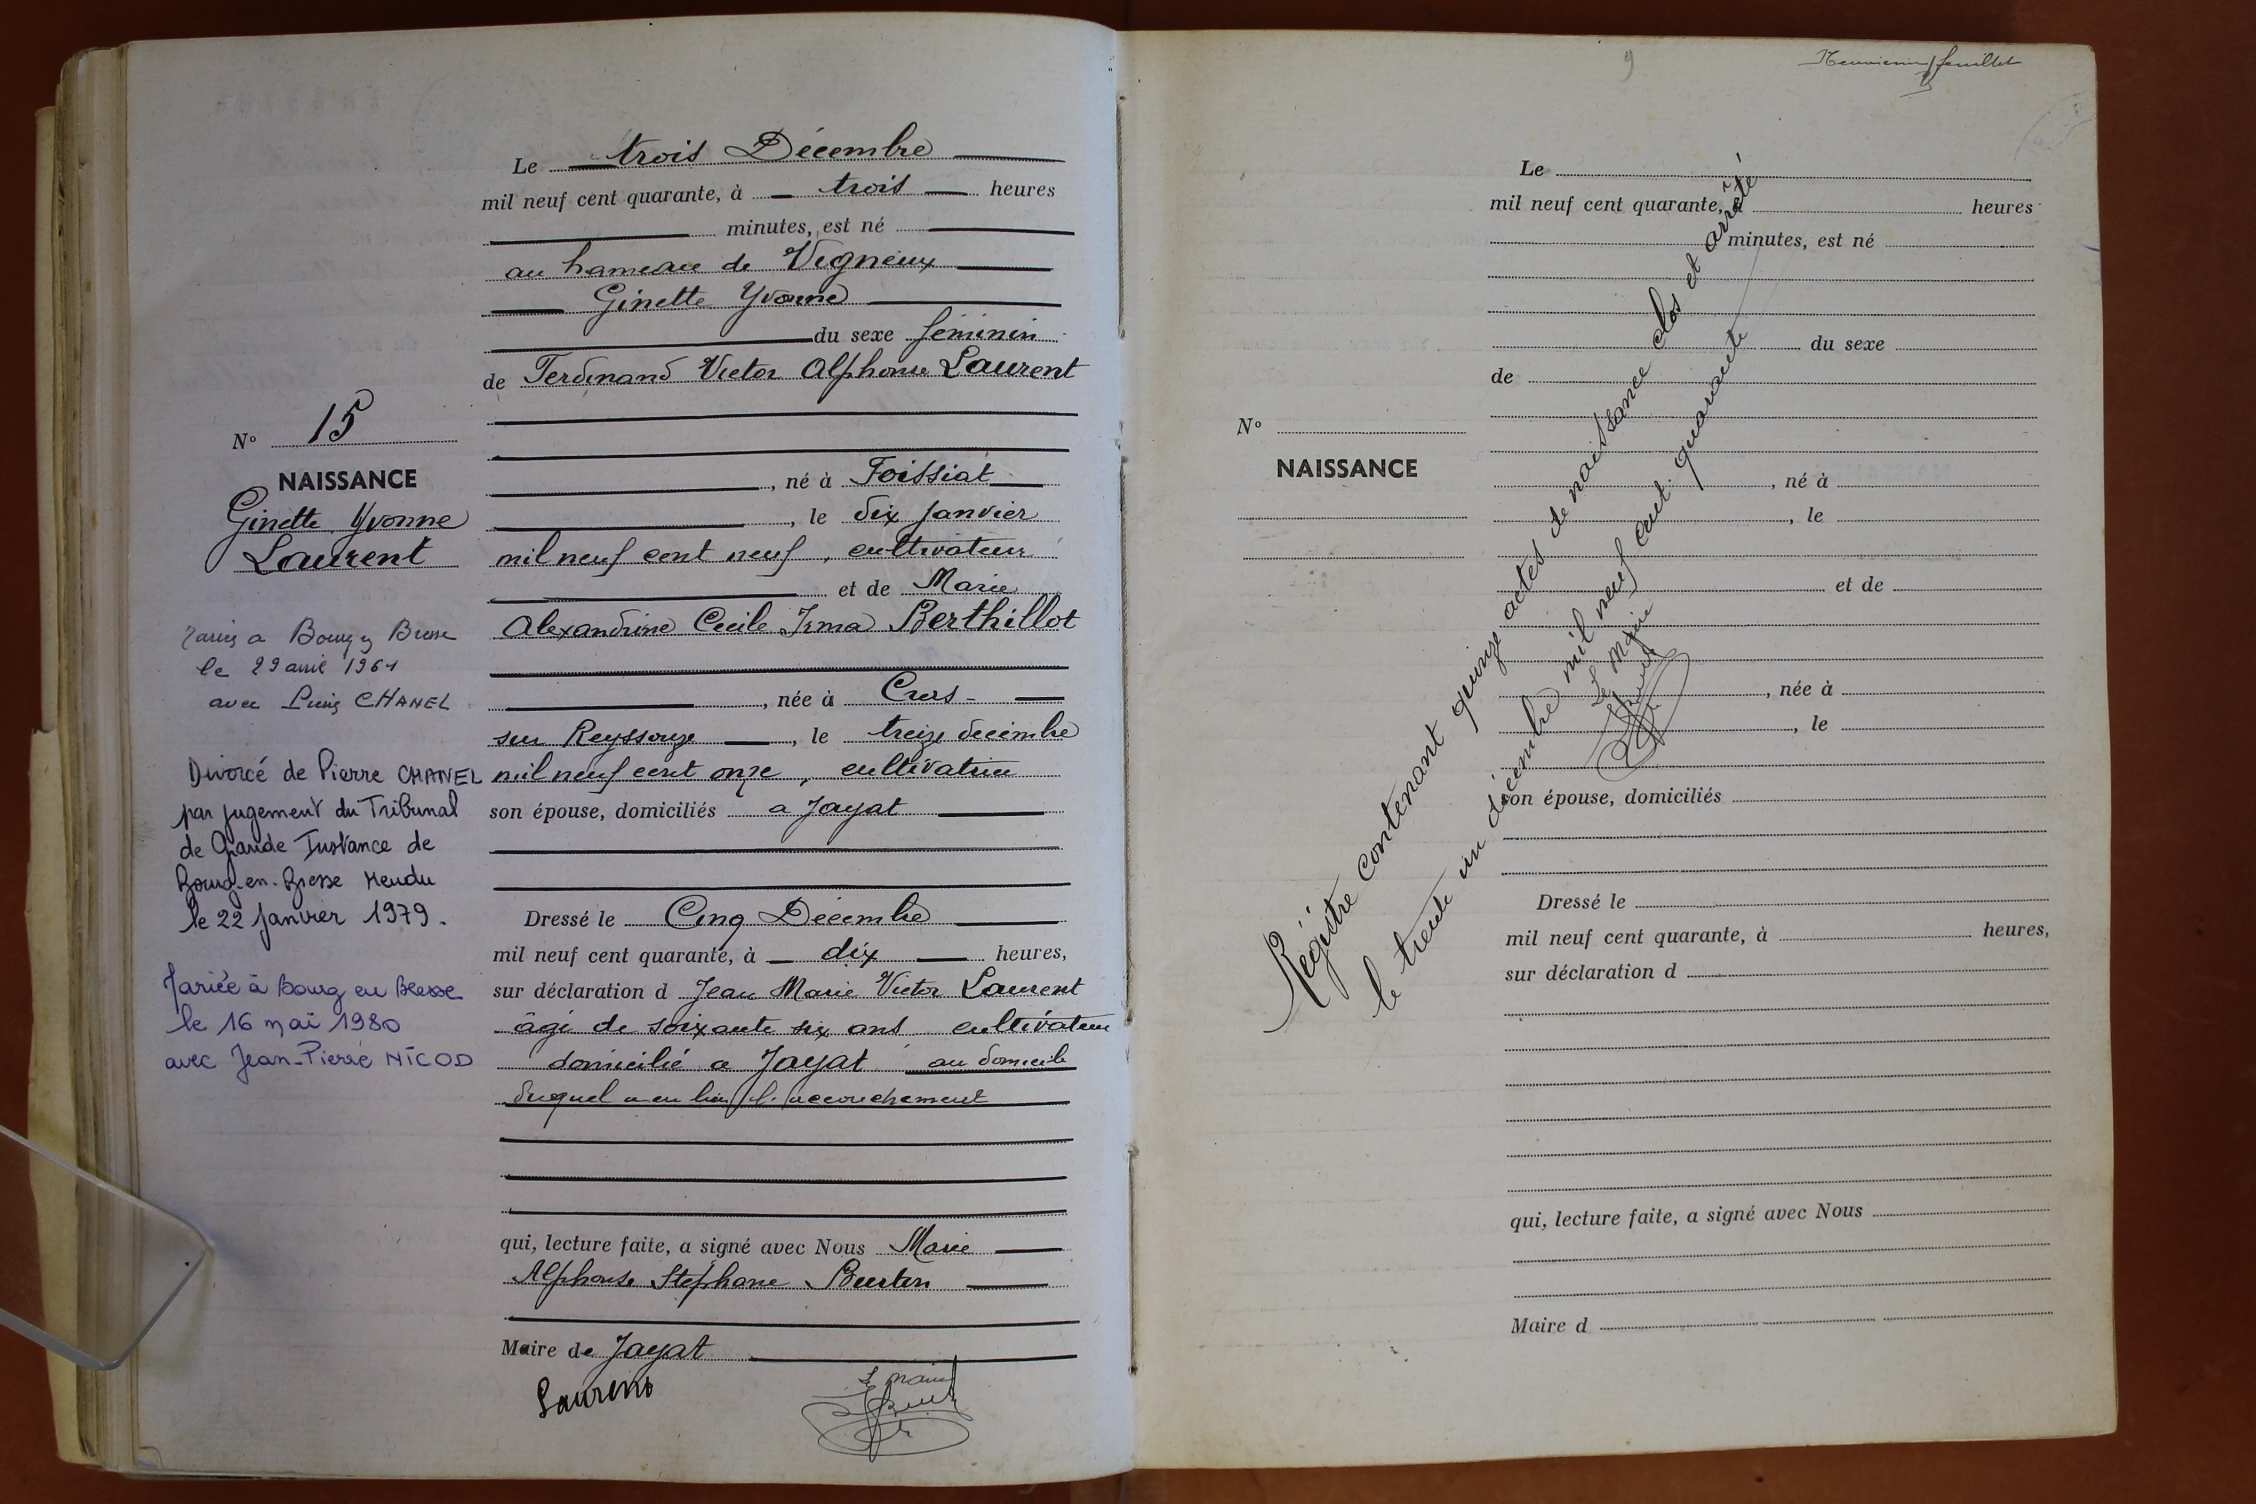 Le trois Décembre
mil neuf cent quarante, à trois heures
minutes, est né
au hameau de Vigneux
Ginette Yvonne
du sexe féminin
de Ferdinand Victor Alphonse Laurent
N° 15
NAISSANCE
Ginette Yvonne
Laurent
, né à Foissiat
, le dix janvier
mil neuf cent neuf, cultivateur
et de Marie
Alexandrine Cécile Irma Berthillot
, née à Cras
sur Reyssouze, le treize décembre
mil neuf cent onze, cultivatrice
son épouse, domiciliés a Jayat
Dressé le Cinq Décembre
mil neuf cent quarante, à dix heures,
sur déclaration d Jean Marie Victor Laurent
âgé de soixante six ans cultivateur
domicilié a Jayat au domicile
duquel a eu lieu l'accouchement
qui, lecture faite, a signé avec Nous Marie
Alphonse Stéphane Burtin
Maire de Jayat
Laurent
Le Maire
a Bourg Bresse
le 29 avril 1961
avec CHANEL
Divorcé de Pierre CHANEL
par jugement du Tribunal
de Grande Instance de
Bourg-en-Bresse rendu
le 22 janvier 1979.
Mariée à Bourg en Bresse
le 16 mai 1980
avec Jean-Pierre NICOD
9
Neuvième feuillet
Le
mil neuf cent quarante, à heures
minutes, est né
du sexe
de
N°
NAISSANCE
, né à
, le
et de
, née à
, le
son épouse, domiciliés
Dressé le
mil neuf cent quarante, à heures,
sur déclaration d
qui, lecture faite, a signé avec Nous
Maire d
Régistre contenant quinze actes de naissance clos et arrêté
le trente un décembre mil neuf cent quarante
Le Maire